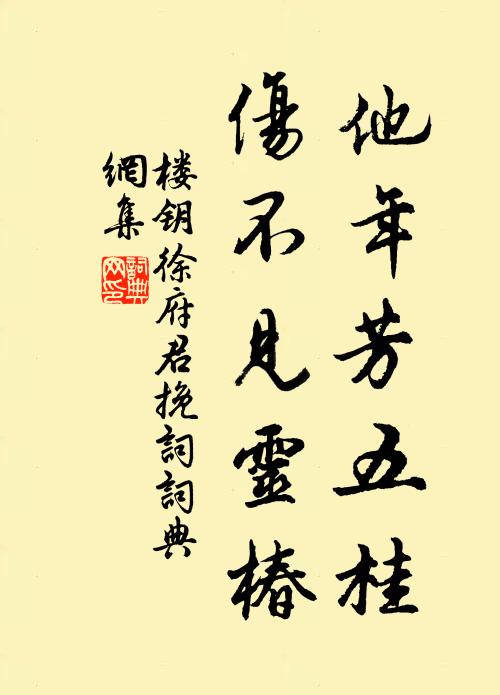 他年芳五桂
傷不見靈椿
楼钥徐府君挽詞詞典
網集
詞典
网印